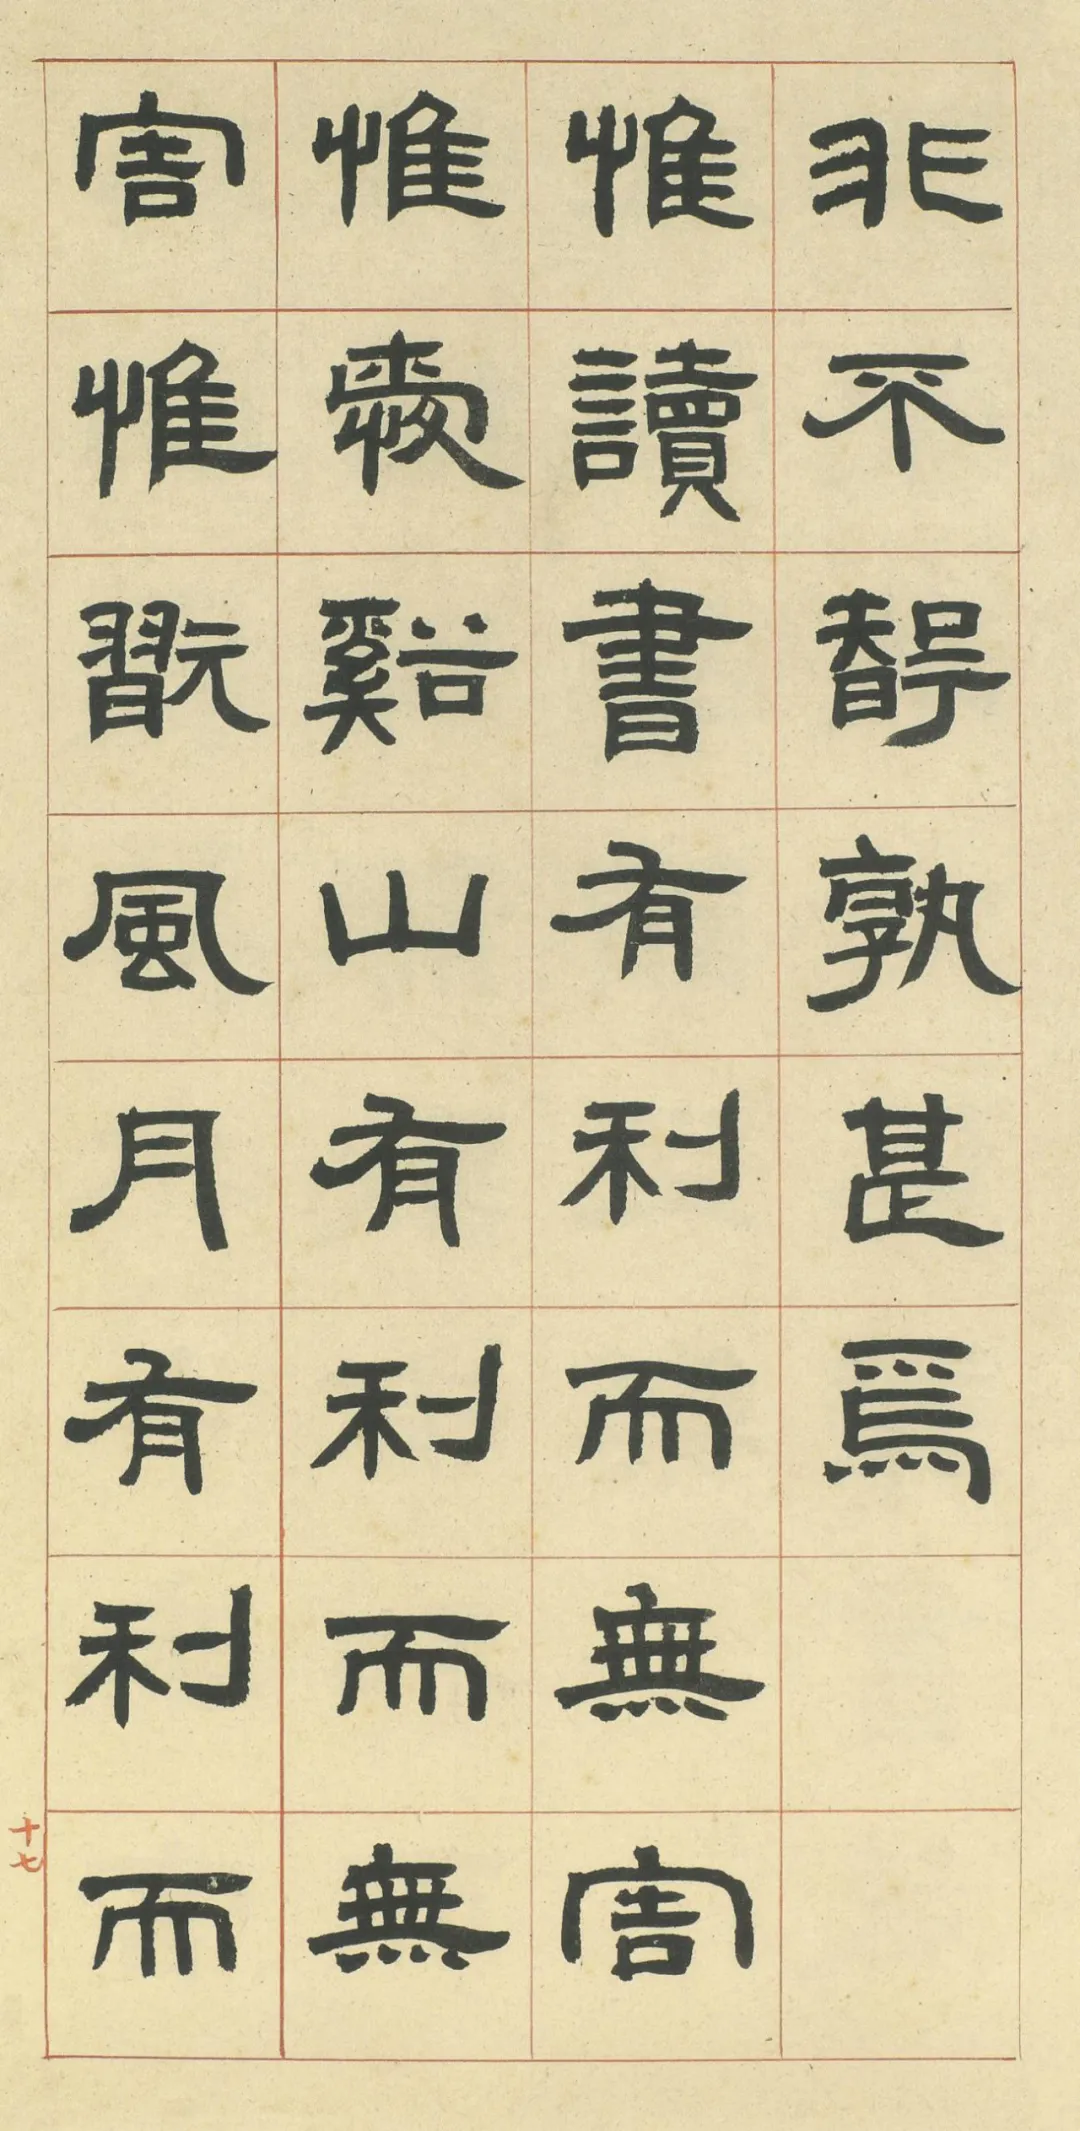 非不智孰甚焉
惟讀書有利而無害
惟愛谿山有利而無
害惟翫風月有利而
十七